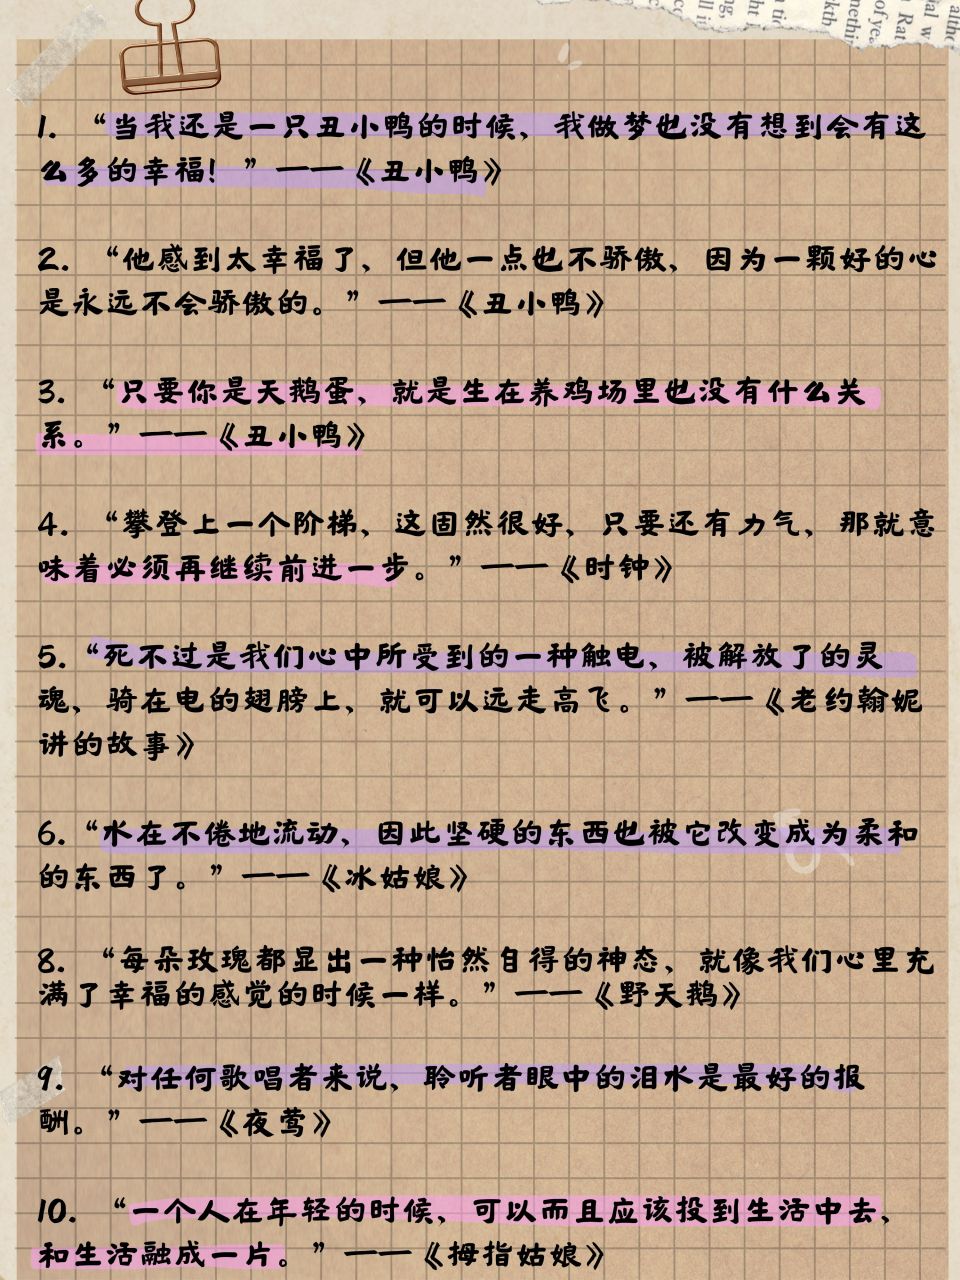 1. “当我还是一只丑小鸭的时候、我做梦也没有想到会有这
么多的幸福！”——《丑小鸭》
2. “他感到太幸福了、但他一点也不骄傲、因为一颗好的心
是永远不会骄傲的。”——《丑小鸭》
3. “只要你是天鹅蛋、就是生在养鸡场里也没有什么关
系。”——《丑小鸭》
4. “攀登上一个阶梯、这固然很好、只要还有力气、那就意
味着必须再继续前进一步。”——《时钟》
5. “死不过是我们心中所受到的一种触电、被解放了的灵
魂、骑在电的翅膀上、就可以远走高飞。”——《老约翰妮
讲的故事》
6. “水在不倦地流动、因此坚硬的东西也被它改变成为柔和
的东西了。”——《冰姑娘》
8. “每朵玫瑰都显出一种怡然自得的神态、就像我们心里充
满了幸福的感觉的时候一样。”——《野天鹅》
9. “对任何歌唱者来说、聆听者眼中的泪水是最好的报
酬。”——《夜莺》
10. “一个人在年轻的时候、可以而且应该投到生活中去、
和生活融成一片。”——《拇指姑娘》